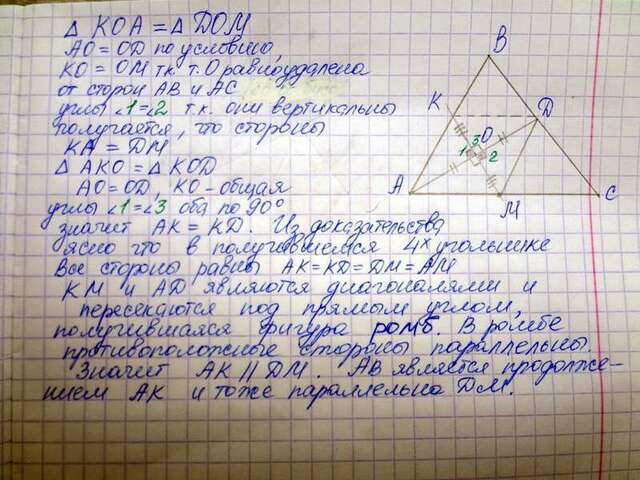 △ KOA = △ DOM
AO = OD по условию,
KO = OM т.к. т. O равноудалена
от сторон AB и AC
углы ∠1=∠2 т.к. они вертикальны
получается, что стороны
KA = DM
△ AKO = △ KOD
AO = OD, KO - общая
углы ∠1=∠3 оба по 90°
значит AK = KD. Из доказательства
ясно что в получившемся 4х угольнике
Все стороны равны AK = KD = DM = AM
KM и AD являются диагоналями и
пересекаются под прямым углом,
получившаяся фигура ромб. В ромбе
противоположные стороны параллельны.
Значит AK || DM. AB является продолже-
нием AK и тоже параллельна DM.
B
K
D
3 O
1 2
A
M
C